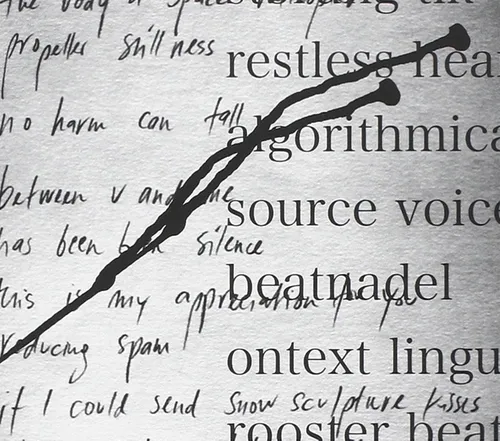 the body a space
propeller stillness
restless hea
no harm can fall
algorithmica
between v and me
source voice
has been silence
beatnadel
this is my appreciation for you
ontext lingu
reducing spam
if I could send snow sculpture kisses
rooster beat